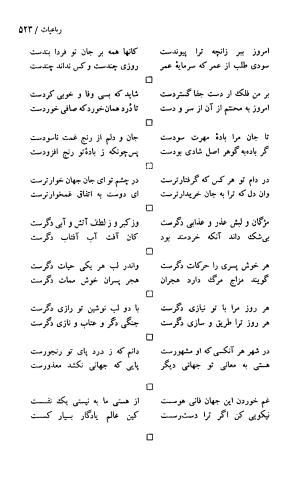 رباعیات / ۵۲۳
امروز ببر زانچه ترا پیوندست کانها همه بر جان تو فردا بندست
سودی طلب از عمر که سرمایهٔ عمر روزی چندست و کس نداند چندست
بر من فلک ار دست جفا گستردست شاید که بسی وفا و خوبی کردست
امروز به محنتم از آن از سر و دست تا دُرد همان خورد که صافی خوردست
تا جان مرا بادهٔ مهرت سودست جان و دلم از رنج غمت ناسودست
گر باده به گوهر اصل شادی بودست پس چونکه ز بادهٔ تو رنج افزودست
در دام تو هر کس که گرفتارترست در چشم تو ای جان جهان خوارترست
وان دل که ترا به جان خریدارترست ای دوست به اتفاق غمخوارترست
مژگان و لبش عذر و عذابی دگرست وز کبر و ز لطف آتش و آبی دگرست
بی‌شک داند آنکه خردمند بود کان آفت آب آفتاب دگرست
هر خوش پسری را حرکات دگرست واندر لب هر یکی حیات دگرست
گویند مزاج مرگ دارد هجران هجر پسران خوش ممات دگرست
هر روز مرا با تو نیازی دگرست با دو لب نوشین تو رازی دگرست
هر روز ترا طریق و سازی دگرست جنگی دگر و عتاب و نازی دگرست
در شهر هر آنکسی که او مشهورست دانم که ز درد پای تو رنجورست
هستی به معانی تو جهانی دیگر پایی که جهانی نکشد معذورست
غم خوردن این جهان فانی هوسست از هستی ما به نیستی یک نفسست
نیکویی کن اگر ترا دست‌رسست کین عالم یادگار بسیار کسست